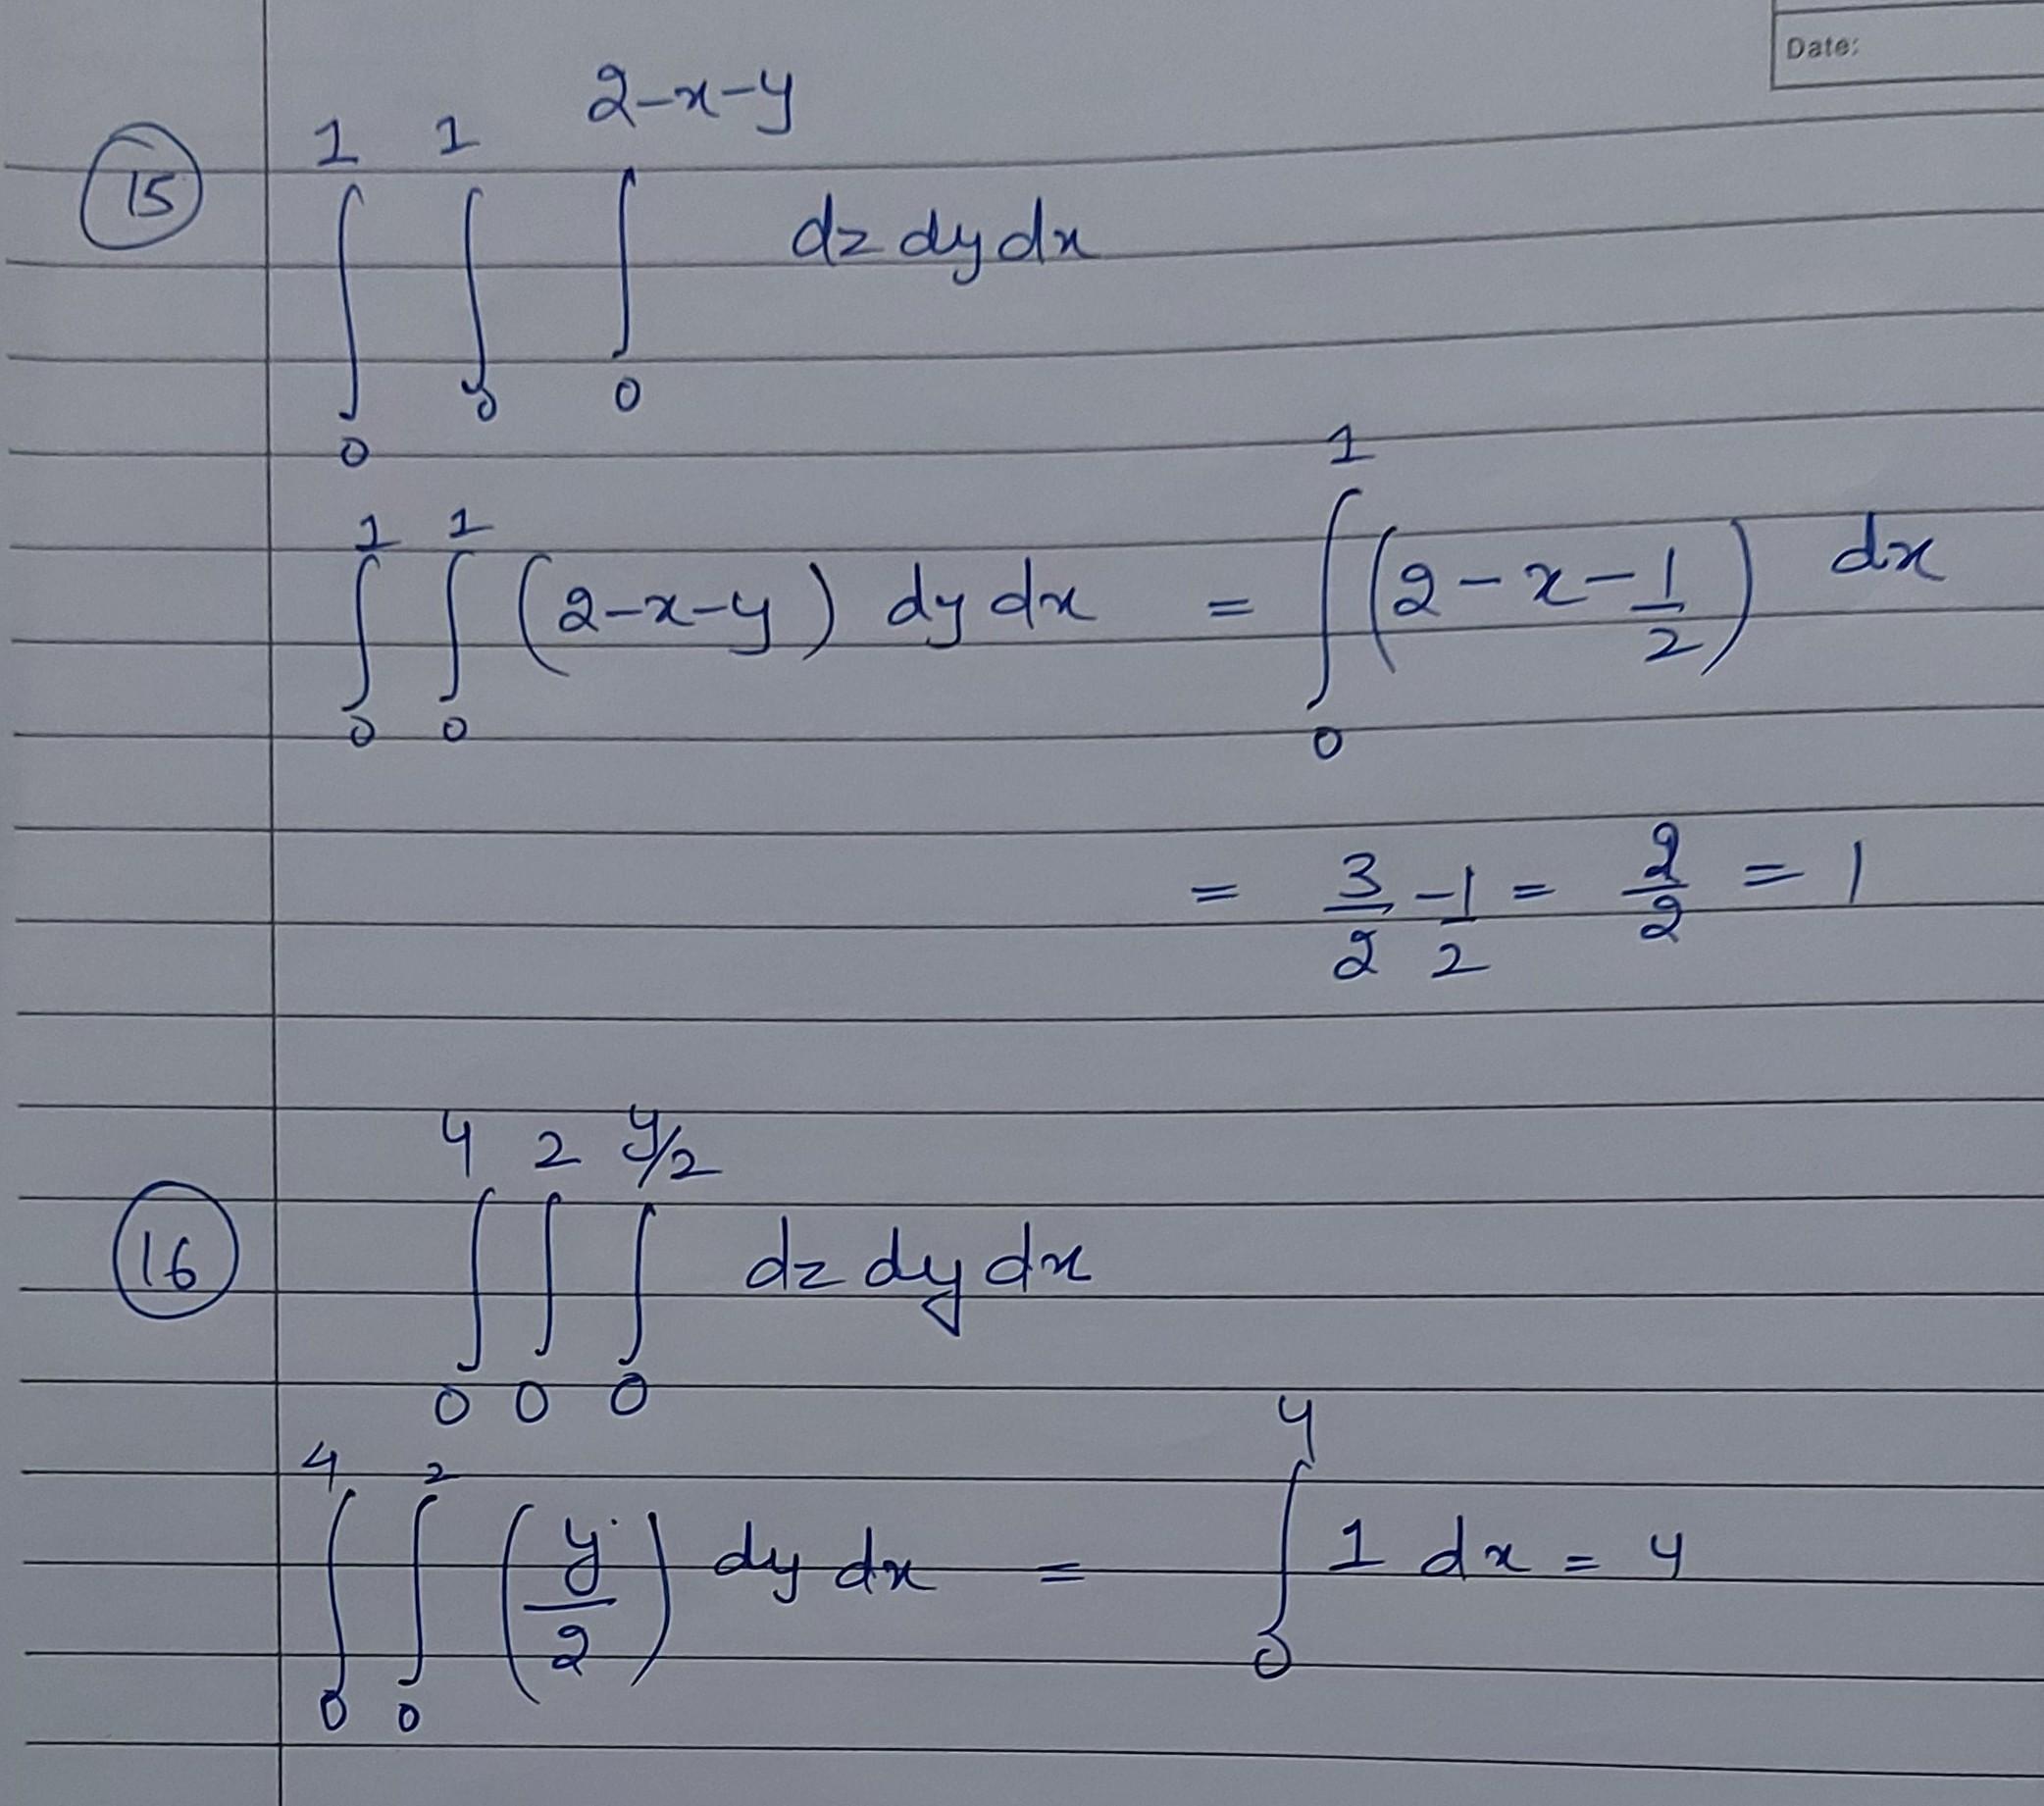 Date:
15 ∫₀¹ ∫₀¹ ∫₀^(2-x-y) dz dy dx
∫₀¹ ∫₀¹ (2-x-y) dy dx = ∫₀¹ (2-x-1/2) dx
= 3/2 - 1/2 = 2/2 = 1
16 ∫₀⁴ ∫₀² ∫₀^(y/2) dz dy dx
∫₀⁴ ∫₀² (y/2) dy dx = ∫₀⁴ 1 dx = 4